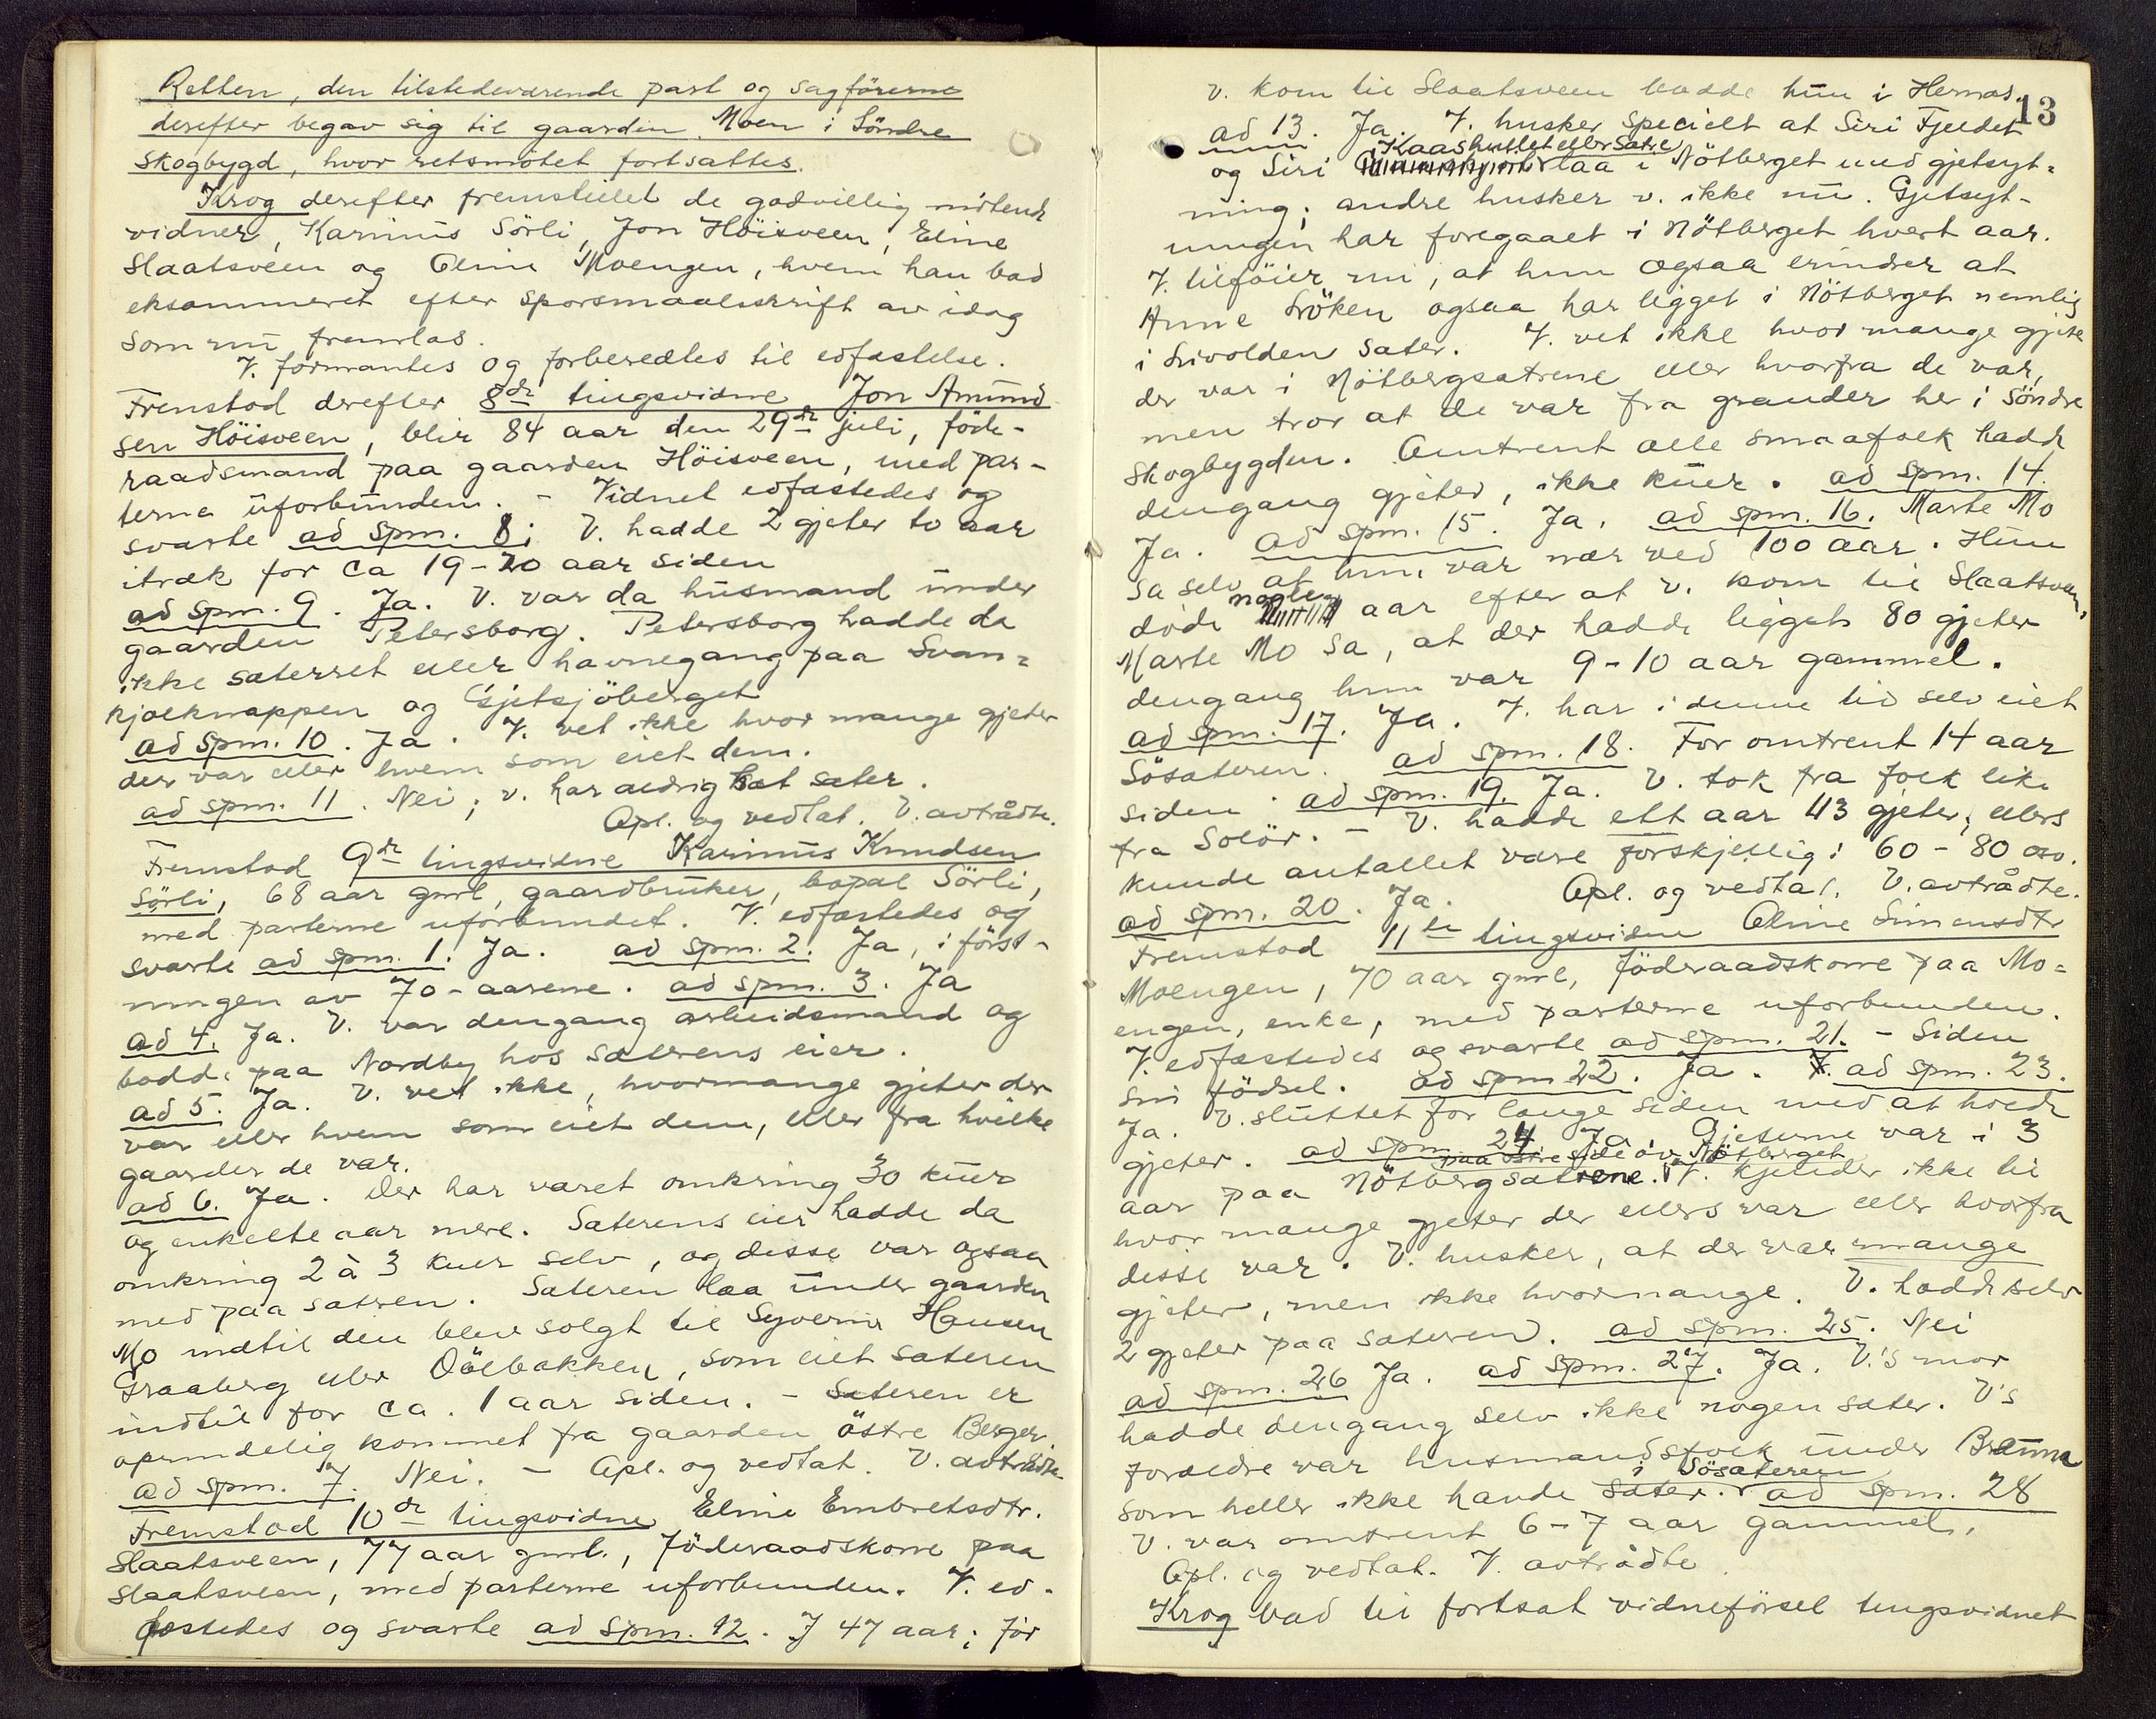 Retten, den tilstedeværende part og sagförerne
derefter begav sig til gaarden Moen i Söndre
Skogbygd, hvor retsmötet fortsattes.
Krog derefter fremstillet de godvillig mötende
vidner, Karinius Sörli, Jon Höisveen, Eline
Slaatsveen og Oline Moengen, hvem han bad
eksammeret efter spörsmaalsskrift av idag
som nu fremlas.
V. formantes og forberedtes til edfæstelse.
Fremstod derefter 8de tingsvidne Jon Amund-
sen Höisveen, blir 84 aar den 29de juli, föde-
raadsmand paa gaarden Höisveen, med par-
terne uforbunden. - Vidnet edfæstedes og
svarte ad spm. 8: V. hadde 2 gjeter to aar
itræk for ca 19-20 aar siden
ad spm. 9. Ja. V. var da husmand under
gaarden Petersborg. Petersborg hadde da
ikke sæterret eller havnegang paa Svan-
kjölknappen og Gjetsjöberget
ad spm. 10. Ja. V. vet ikke hvor mange gjeter
der var eller hvem som eiet dem.
ad spm. 11. Nei; v. har aldrig hat sæter.
Opl. og vedtat. V. avtrådte.
Fremstod 9de tingsvidne Karinius Knudsen
Sörli, 68 aar gml, gaardbruker, bopæl Sörli,
med parterne uforbundet. V. edfæstedes og
svarte ad spm. 1. Ja. ad spm. 2. Ja, i först-
ningen av 70-aarene. ad spm. 3. Ja
ad 4. Ja. V. var dengang arbeidsmand og
bodde paa Nordby hos sæterens eier.
ad 5. Ja. V. vet ikke, hvormange gjeter der
var eller hvem som eiet dem, eller fra hvilke
gaarder de var.
ad 6. Ja. Der har været omkring 30 kuer
og enkelte aar mere. Sæterens eier hadde da
omkring 2 à 3 kuer selv, og disse var ogsaa
med paa sætren. Sæteren laa under gaarden
Mo indtil den blev solgt til Syverin Hansen
Graaberg eller Dölbakken, som eiet sæteren
indtil for ca. 1 aar siden. - Sæteren er
oprindelig kommet fra gaarden östre Berger
ad spm. 7. Nei. - Opl. og vedtat. V. avtrådte.
Fremstod 10de tingsvidne Eline Embretsdtr.
Slaatsveen, 77 aar gml., föderaadskone paa
Slaatsveen, med parterne uforbunden. V. ed-
fæstedes og svarte ad spm. 12. I 47 aar; för
13
v. kom til Slaatsveen bodde hun i Hernæs.
ad 13. Ja. V. husker specielt at Siri Fjeldet
Kaashullet eller Sætre
og Siri laa i Nötberget med gjetsyt-
ning; andre husker v. ikke nu. Gjetsyt-
ningen har foregaaet i Nötberget hvert aar.
V. tilföier nu, at hun ogsaa erindrer at
Anne Fröken ogsaa har ligget i Nötberget nemlig
i Livolden sæter. V. vet ikke hvor mange gjeter
der var i Nötbergsætrene eller hvorfra de var,
men tror at de var fra grander her i Söndre
Skogbygden. Omtrent alle smaafolk hadde
dengang gjeter, ikke kuer. ad spm. 14.
Ja. ad spm. 15. Ja. ad spm. 16. Marte Mo
sa selv at hun var nær ved 100 aar. Hun
döde nogle aar efter at v. kom til Slaatsveen.
Marte Mo sa, at der hadde ligget 80 gjeter
dengang hun var 9-10 aar gammel.
ad spm. 17. Ja. V. har i denne tid selv eiet
Sösæteren. ad spm. 18. For omtrent 14 aar
siden. ad spm. 19. Ja. V. tok fra folk like
fra Solör. - V. hadde ett aar 43 gjeter; ellers
kunde antallet være forskjellig: 60-80 oso.
ad spm. 20. Ja. Opl. og vedtat. V. avtrådte.
Fremstod 11te tingsvidne Oline Simensdtr
Moengen, 70 aar gml, föderaadskone paa Mo-
engen, enke, med parterne uforbunden.
V. edfæstedes og svarte ad spm. 21. - Siden
sin födsel. ad spm 22. Ja. ad spm. 23.
Ja. V. sluttet for lange siden med at holde
gjeter. ad spm. 24. Ja. Gjeterne var i 3
paa östre side av Nötberget
aar paa Nötbergsætrene. V. kjender ikke til
hvor mange gjeter der ellers var eller hvorfra
disse var. V. husker, at der var mange
gjeter, men ikke hvormange. V. hadde selv
2 gjeter paa sæteren. ad spm. 25. Nei
ad spm. 26 Ja. ad spm. 27. Ja. V.'s mor
hadde dengang selv ikke nogen sæter. V's
forældre var husmandsfolk under Brenna
i Sösæteren
som heller ikke havde sæter. ad spm. 28
V. var omtrent 6-7 aar gammel.
Opl. og vedtat. V. avtrådte.
Krog bad til fortsat vidneförsel tingsvidnet